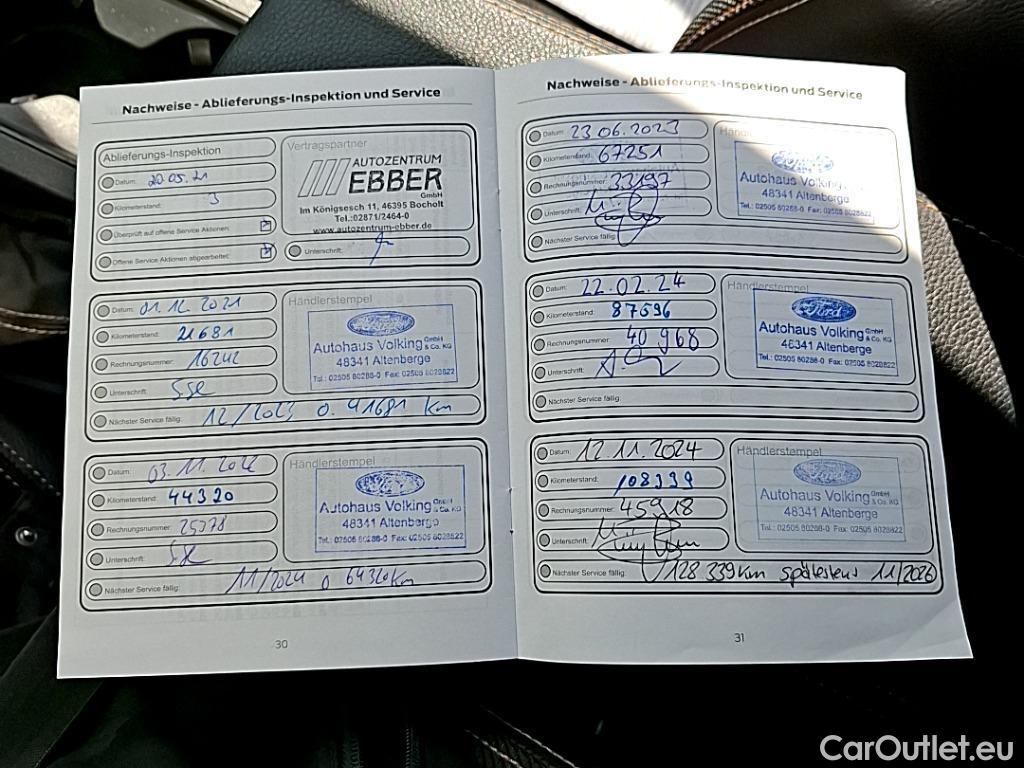 Nachweise - Ablieferungs-Inspektion und Service
Ablieferungs-Inspektion
Datum: 20.05.21
Kilometerstand: 3
Überprüft auf offene Service Aktionen:
Offene Service Aktionen abgearbeitet:
Vertragspartner
AUTOZENTRUM
EBBER
GmbH
Im Königsesch 11, 46395 Bocholt
Tel.:02871/2464-0
www.autozentrum-ebber.de
Unterschrift:
Datum: 01.12.2021
Kilometerstand: 21681
Rechnungsnummer: 16242
Unterschrift:
Händlerstempel
Ford
Autohaus Volking GmbH & Co. KG
48341 Altenberge
Tel.: 02505 80288-0 Fax: 02505 8028822
Nächster Service fällig: 12/2023 o. 41681 Km
Datum: 03.11.2022
Kilometerstand: 44320
Rechnungsnummer: 25278
Unterschrift:
Händlerstempel
Ford
Autohaus Volking GmbH & Co. KG
48341 Altenberge
Tel.: 02505 80288-0 Fax: 02505 8028822
Nächster Service fällig: 11/2024 o 64320 Km
30
Nachweise - Ablieferungs-Inspektion und Service
Datum: 23.06.2023
Kilometerstand: 67251
Rechnungsnummer: 33197
Unterschrift:
Nächster Service fällig:
Ford
Autohaus Volking
48341 Altenberge
Tel.: 02505 80288-0 Fax: 02505 8028822
Datum: 22.02.24
Kilometerstand: 87596
Rechnungsnummer: 40968
Unterschrift:
Nächster Service fällig:
Händlerstempel
Ford
Autohaus Volking GmbH & Co. KG
48341 Altenberge
Tel.: 02505 80288-0 Fax: 02505 8028822
Datum: 12.11.2024
Kilometerstand: 108339
Rechnungsnummer: 45918
Unterschrift:
Händlerstempel
Ford
Autohaus Volking GmbH & Co. KG
48341 Altenberge
Tel.: 02505 80288-0 Fax: 02505 8028822
Nächster Service fällig: 128 339 km spätestens 11/2026
31
CarOutlet.eu